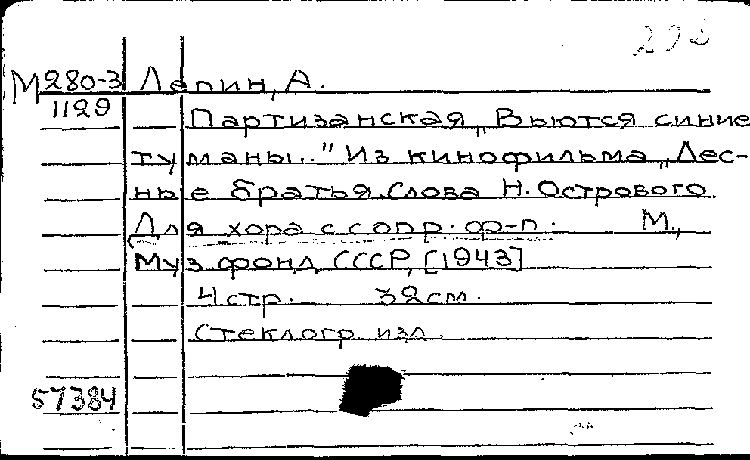 292
М280-3 Лепин, А.
1129
Партизанская „Вьются синие
туманы..." Из кинофильма „Лес-
ные братья. Слова Н. Острового
Для хора с сопр. ф-п. М.,
Музфонд СССР, [1943]
4 стр. 32 см.
Стеклогр. изд.
57384